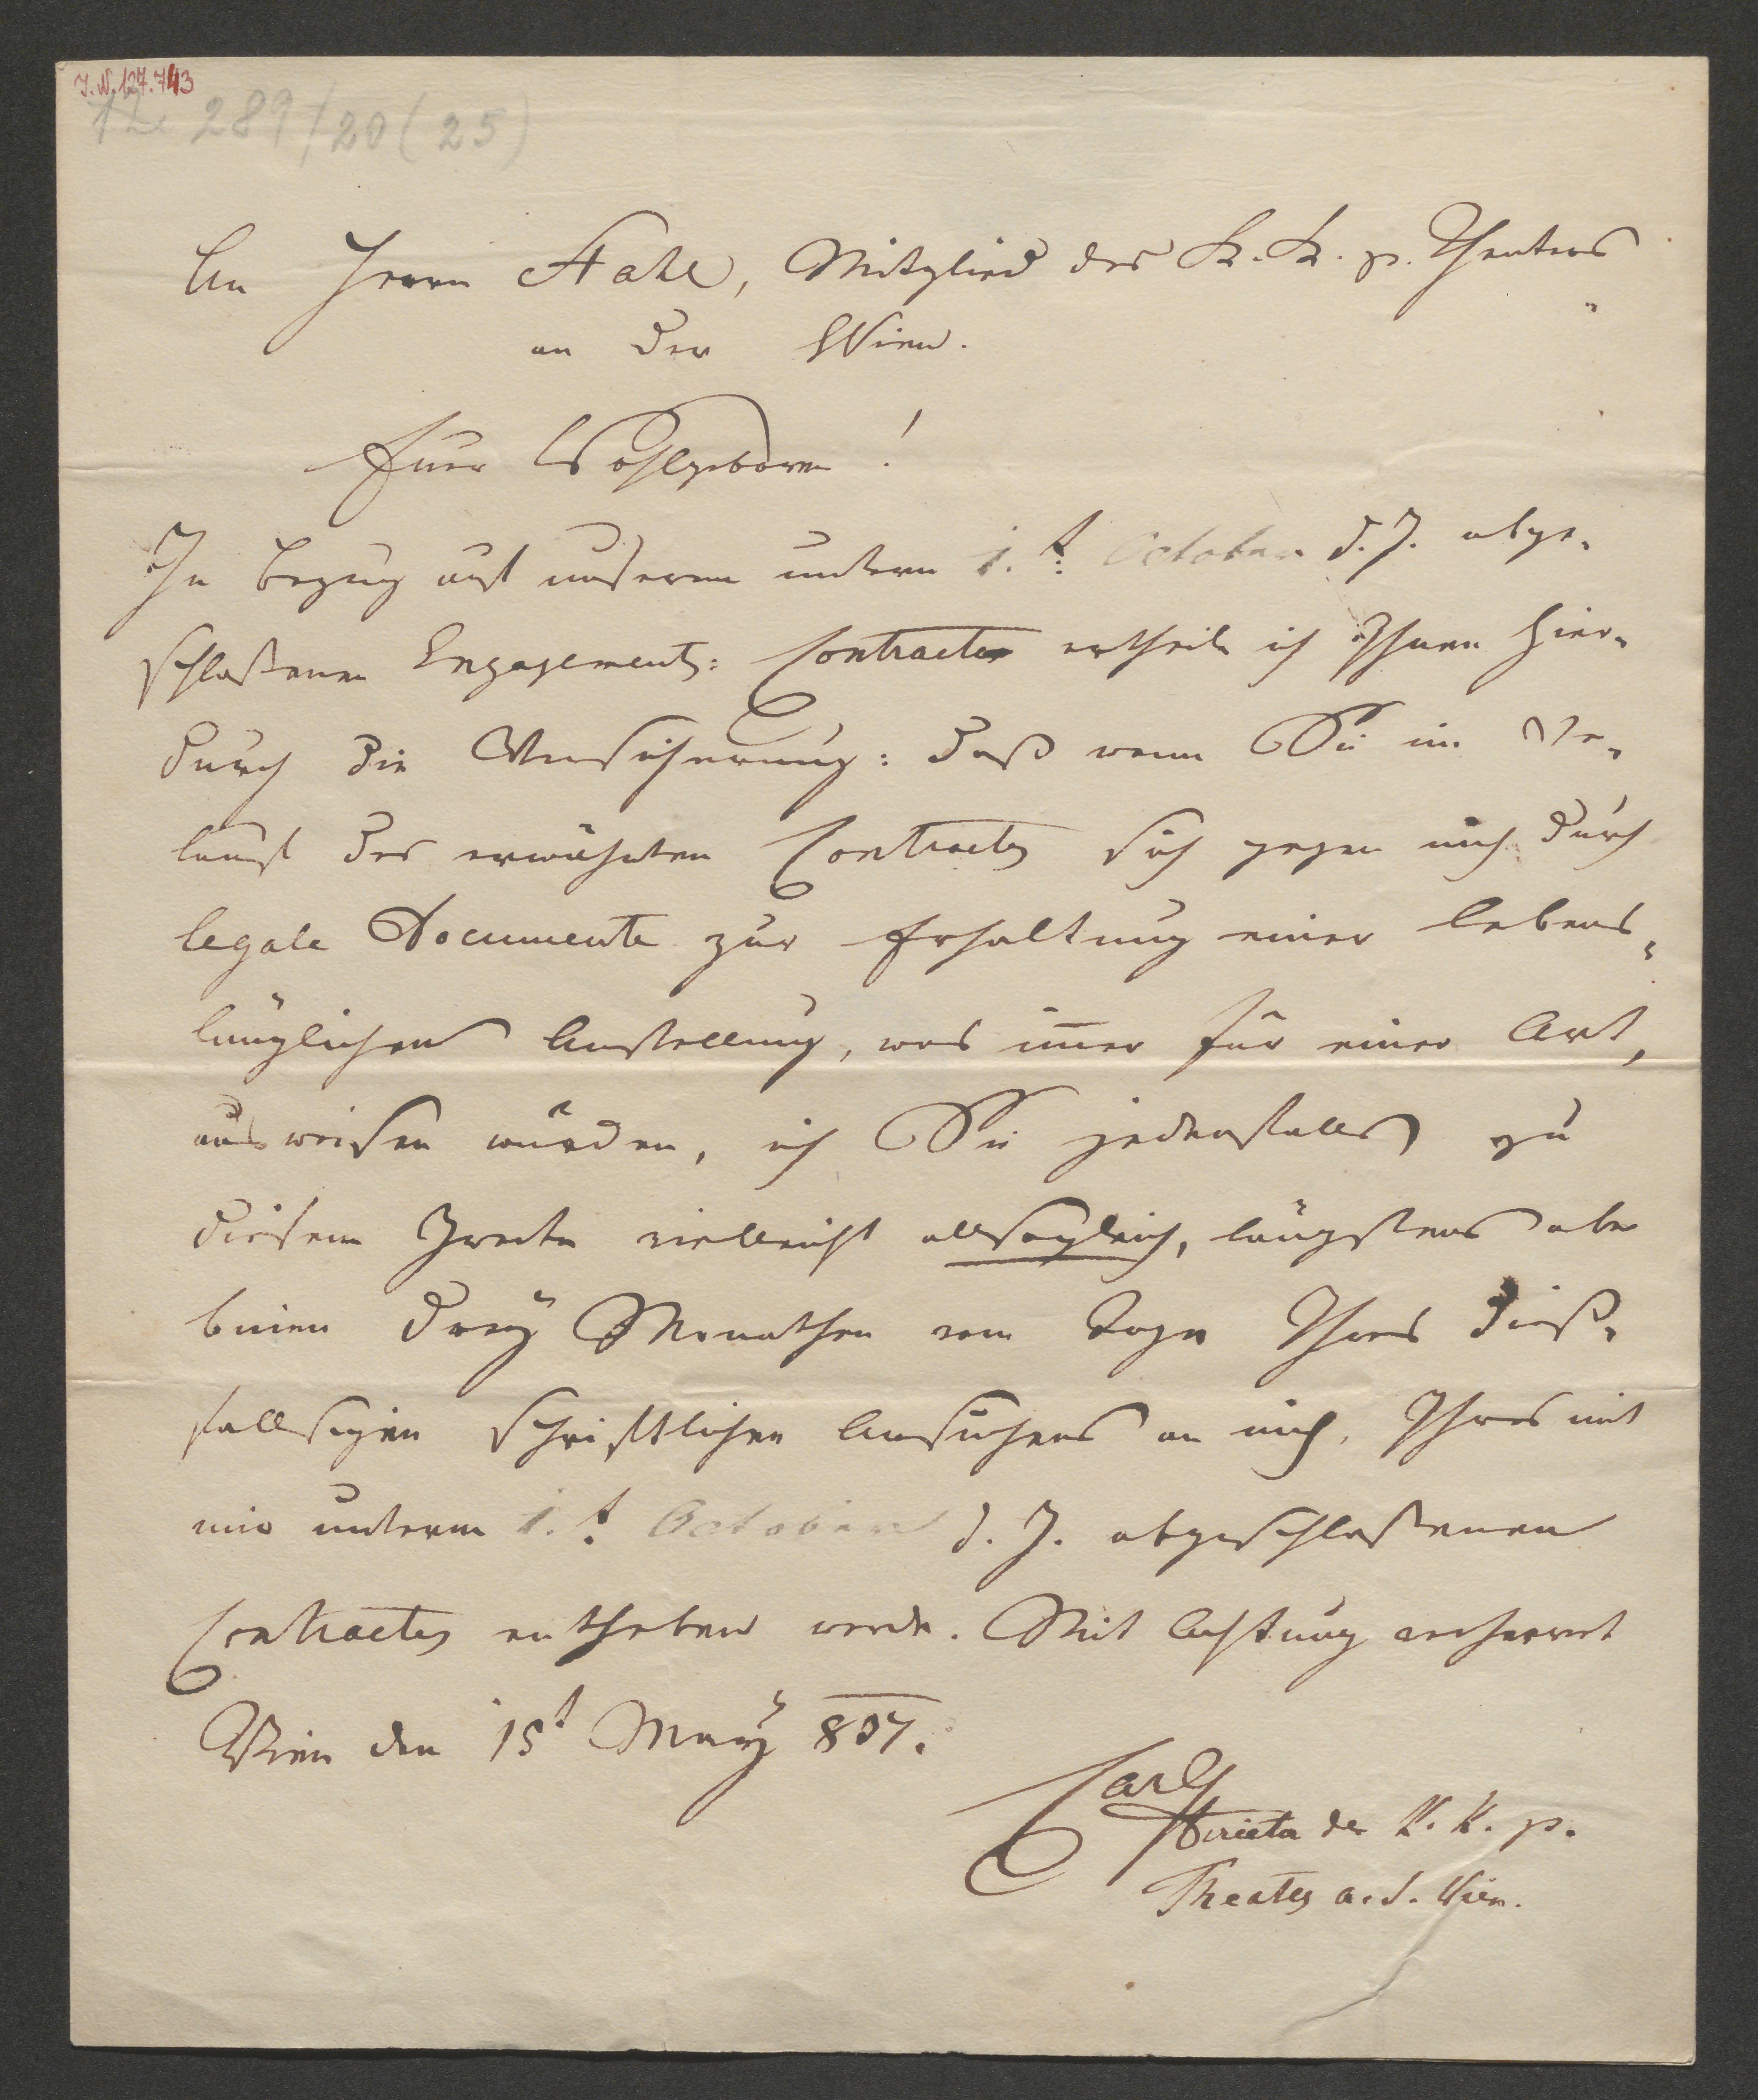 J.N. 127.743
289/20 (25)
An Herrn Stahl, Mitglied des K. K. p. Theaters
an der Wien.
Euer Wohlgeboren!
In Bezug auf unseren unterm 1.t October d. J. abge-
schloßenen Engagements: Contractes ertheile ich Ihnen hier-
durch die Versicherung: daß wenn Sie im Ver-
laufe des erwähnten Contractes sich gegen mich durch
legale Documente zur Erhaltung einer lebens-
länglichen Anstellung, was im̅er für einer Art,
ausweisen würden, ich Sie jedenfalls zu
diesem Zwecke vielleicht allsogleich, längstens aber
binnen drey Monathen vom Tage Ihres dieß-
fallsigen schriftlichen Ansuchens an mich, Ihres mit
mir unterm 1.t October d. J. abgeschloßenen
Contractes entheben werde. Mit Achtung verharret
Wien den 15t May 837.
Carl
Director des K. K. p.
Theaters a. d. Wien.